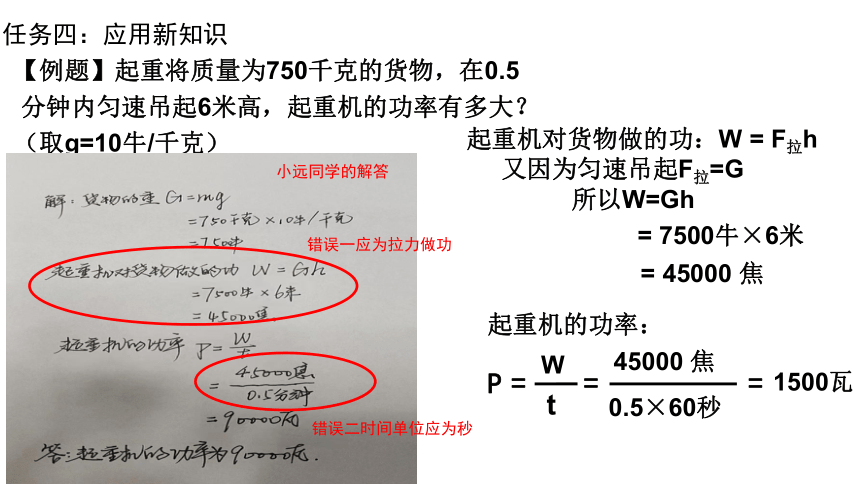 任务四：应用新知识
【例题】起重将质量为750千克的货物，在0.5
分钟内匀速吊起6米高，起重机的功率有多大？
（取g=10牛/千克）
小远同学的解答
解：货物的重 G=mg
=750千克×10牛/千克
=750牛
错误一应为拉力做功
起重机对货物做的功 W=Gh
=7500牛×6米
=45000焦
起重机的功率 P=W/t
=45000焦/0.5分钟
=90000瓦
错误二时间单位应为秒
答：起重机的功率为90000瓦.
起重机对货物做的功：W = F拉h
又因为匀速吊起F拉=G
所以W=Gh
= 7500牛×6米
= 45000 焦
起重机的功率：
P = W/t = 45000 焦/0.5×60秒 = 1500瓦